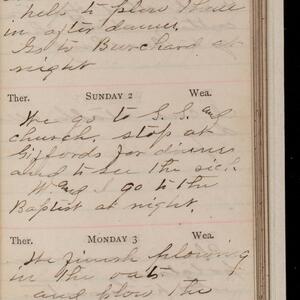 help to plow there
in after dinner.
Go to Burchard at
night
Ther. SUNDAY 2 Wea.
We go to S. S. and
church. stop at
Giffords for dinner
and to see the sick.
W and I go to the
Baptist at night.
Ther. MONDAY 3 Wea.
We finish plowing
in the oats
and plow the